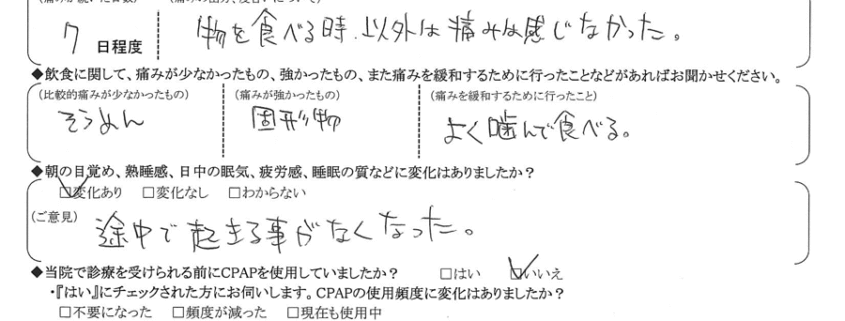 (痛みが続いた日数) (痛みの出方、度合いについて)
7 日程度 物を食べる時以外は痛みは感じなかった。
◆飲食に関して、痛みが少なかったもの、強かったもの、また痛みを緩和するために行ったことなどがあればお聞かせください。
(比較的痛みが少なかったもの) (痛みが強かったもの) (痛みを緩和するために行ったこと)
そうめん 固形物 よく噛んで食べる。
◆朝の目覚め、熟睡感、日中の眠気、疲労感、睡眠の質などに変化はありましたか?
☑変化あり □変化なし □わからない
(ご意見) 途中で起きる事がなくなった。
◆当院で診療を受けられる前にCPAPを使用していましたか? □はい ☑いいえ
・『はい』にチェックされた方にお伺いします。CPAPの使用頻度に変化はありましたか?
□不要になった □頻度が減った □現在も使用中